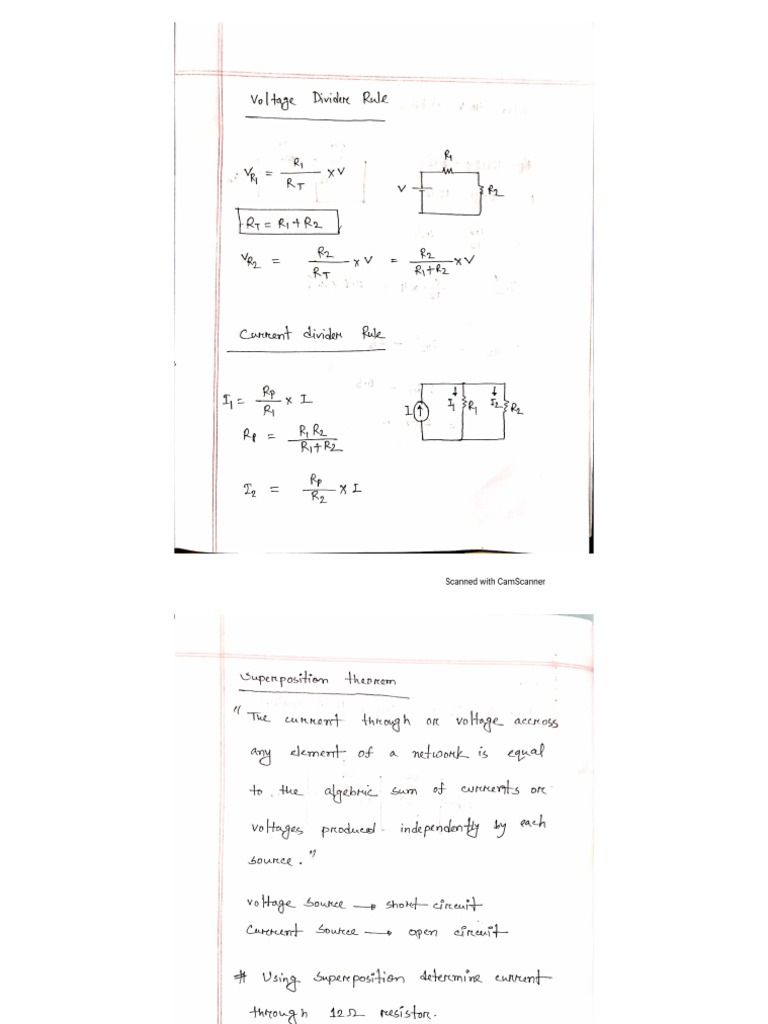 Voltage Divider Rule
V_R1 = R1/RT × V
R1
V
R2
RT = R1 + R2
V_R2 = R2/RT × V = R2/(R1+R2) × V
Current divider Rule
I1 = Rp/R1 × I
I
I1
R1
I2
R2
Rp = R1R2/(R1+R2)
I2 = Rp/R2 × I
Scanned with CamScanner
Superposition theorem
"The current through or voltage accross
any element of a network is equal
to the algebric sum of currents or
voltages produced independently by each
source."
Voltage source → short circuit
Current source → open circuit
# Using superposition determine current
through 12Ω resistor.